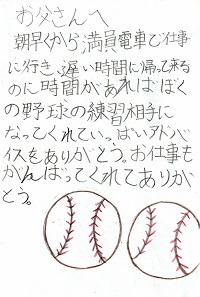 お父さんへ
朝早くから満員電車で仕事
に行き、遅い時間に帰って来る
のに時間があればぼく
の野球の練習相手に
なってくれていっぱいアドバ
イスをありがとう。お仕事も
がんばってくれてありが
とう。